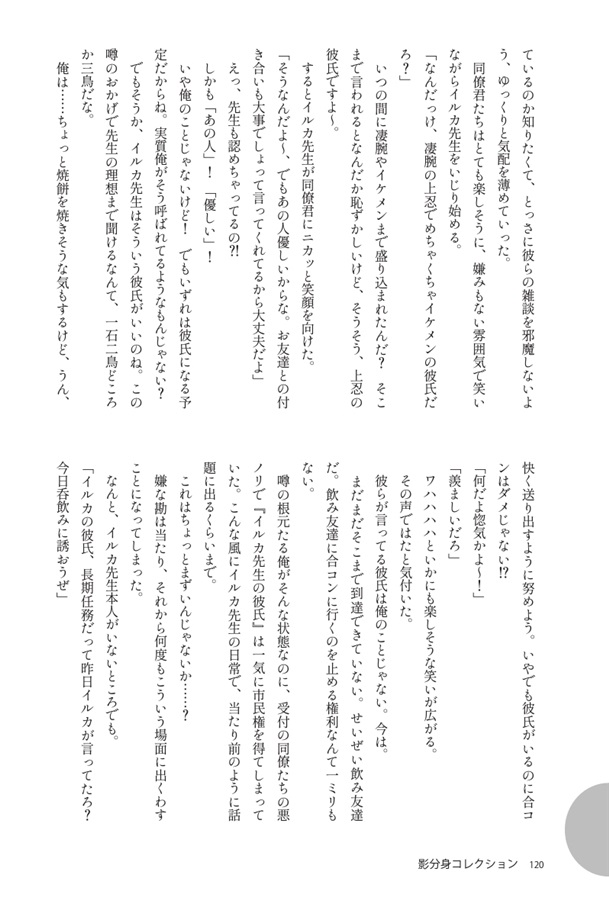 ているのか知りたくて、とっさに彼らの雑談を邪魔しないよ
う、ゆっくりと気配を薄めていった。
同僚君たちはとても楽しそうに、嫌みもない雰囲気で笑い
ながらイルカ先生をいじり始める。
「なんだっけ、凄腕の上忍でめちゃくちゃイケメンの彼氏だ
ろ？」
いつの間に凄腕やイケメンまで盛り込まれたんだ？　そこ
まで言われるとなんだか恥ずかしいけど、そうそう、上忍の
彼氏ですよ～。
するとイルカ先生が同僚君にニカッと笑顔を向けた。
「そうなんだよ～、でもあの人優しいからな。お友達との付
き合いも大事でしょって言ってくれてるから大丈夫だよ」
えっ、先生も認めちゃってるの?!
しかも「あの人」！　「優しい」！
いや俺のことじゃないけど！　でもいずれは彼氏になる予
定だからね。実質俺がそう呼ばれてるようなもんじゃない？
でもそうか、イルカ先生はそういう彼氏がいいのね。この
噂のおかげで先生の理想まで聞けるなんて、一石二鳥どころ
か三鳥だな。
俺は……ちょっと焼餅を焼きそうな気もするけど、うん、
快く送り出すように努めよう。いやでも彼氏がいるのに合コ
ンはダメじゃない!?
「何だよ惚気かよ～！」
「羨ましいだろ」
ワハハハといかにも楽しそうな笑いが広がる。
その声ではたと気付いた。
彼らが言ってる彼氏は俺のことじゃない。今は。
まだまだそこまで到達できていない。せいぜい飲み友達
だ。飲み友達に合コンに行くのを止める権利なんて一ミリも
ない。
噂の根元たる俺がそんな状態なのに、受付の同僚たちの悪
ノリで『イルカ先生の彼氏』は一気に市民権を得てしまって
いた。こんな風にイルカ先生の日常で、当たり前のように話
題に出るくらいまで。
これはちょっとまずいんじゃないか……？
嫌な勘は当たり、それから何度もこういう場面に出くわす
ことになってしまった。
なんと、イルカ先生本人がいないところでも。
「イルカの彼氏、長期任務だって昨日イルカが言ってたろ？
今日呑飲みに誘おうぜ」
影分身コレクション 120